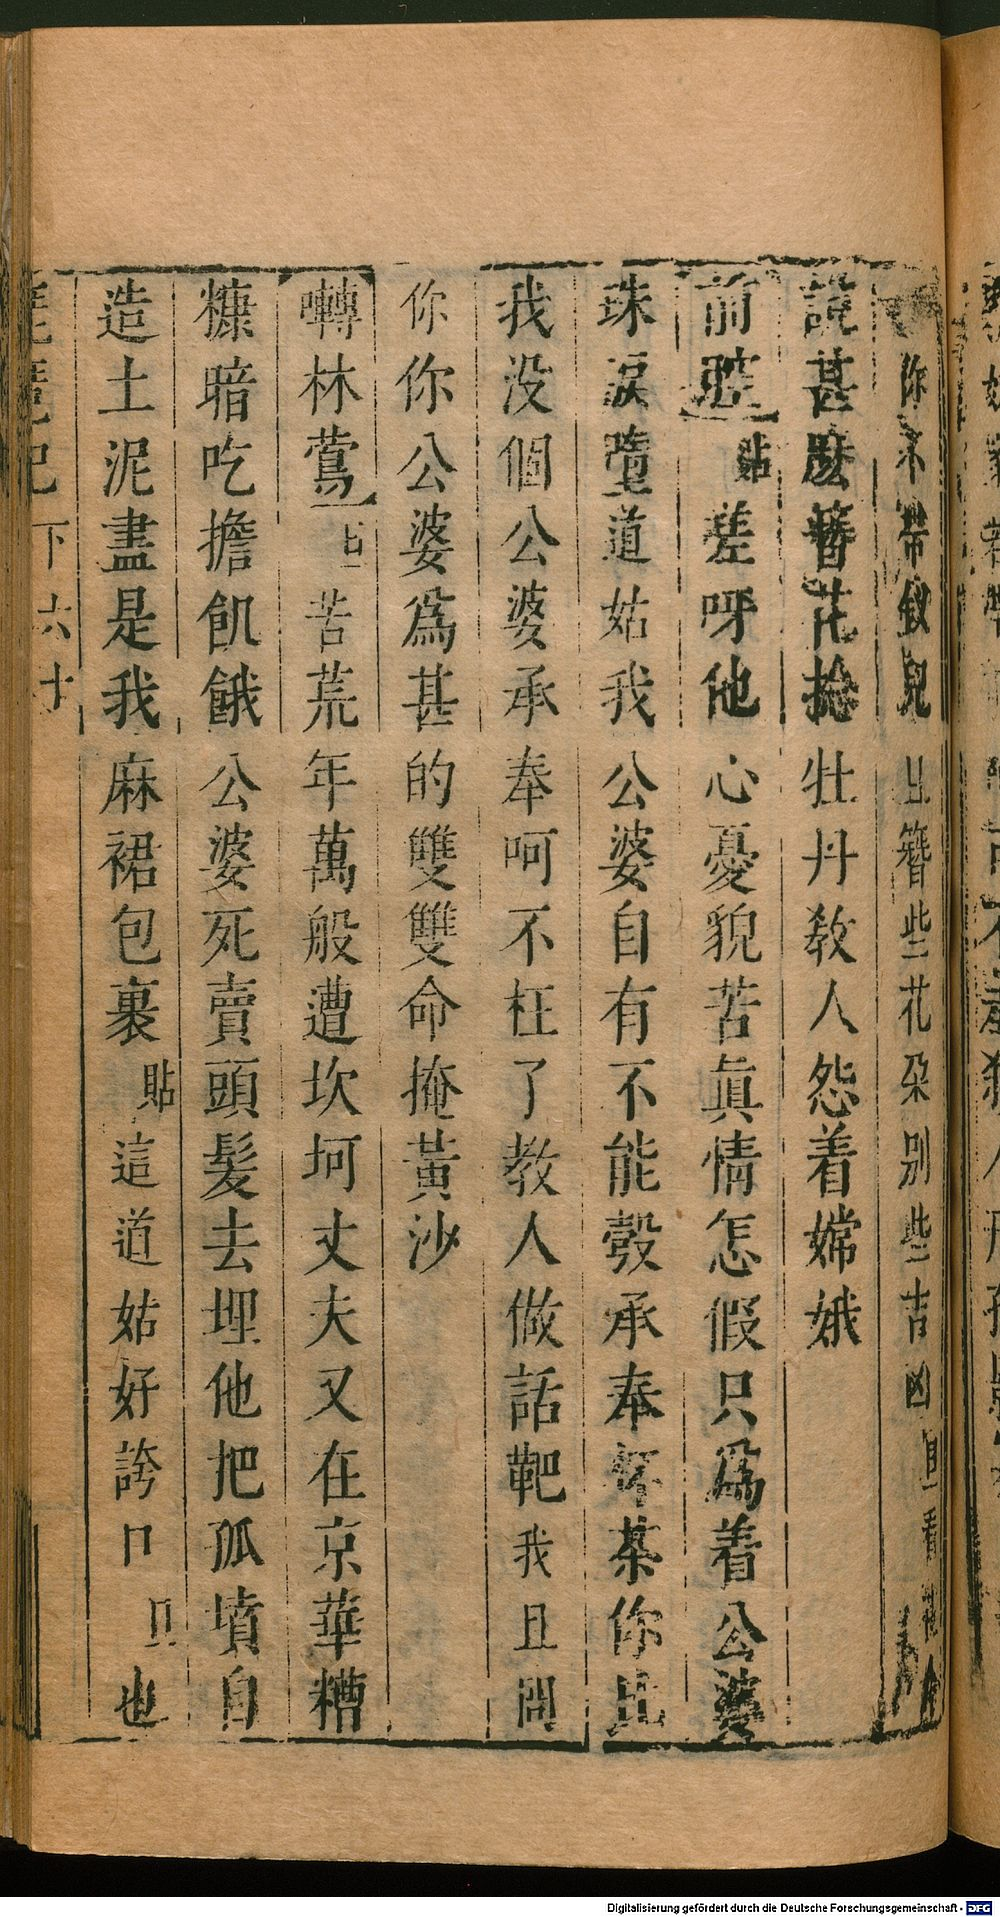 你不帶釵兒且簪些花朶別些吉凶旦看
說甚麽簪花捻牡丹敎人怨着嫦娥
前腔貼差呀他心憂貌苦眞情怎假只爲着公婆
珠淚墮道姑我公婆自有不能彀承奉杯茶你比
我没個公婆承奉呵不枉了教人做話靶我且問
你你公婆爲甚的雙雙命掩黃沙
囀林鶯旦苦荒年萬般遭坎坷丈夫又在京華糟
糠暗吃擔飢餓公婆死賣頭髮去埋他把孤墳自
造土泥盡是我麻裙包裹貼這道姑好誇口旦也
琵琶記下六十
Digitalisierung gefördert durch die Deutsche Forschungsgemeinschaft - DFG